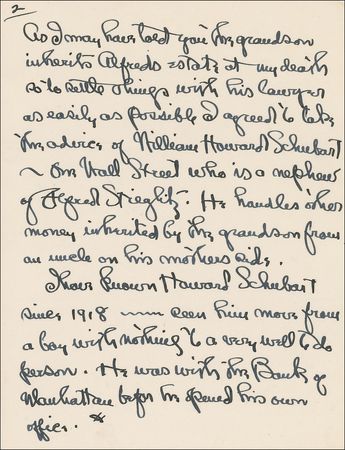 2
As I may have told you the grandson
inherits Alfreds estate at my death
so to settle things with his lawyer
as easily as possible I agreed to take
the advice of William Howard Schubart
~ One Wall Street who is a nephew
of Alfred Stieglitz. He handles other
money inherited by the grandson from
an uncle on his mothers side.
I have known Howard Schubart
since 1918 ~~~ seen him move from
a boy with nothing to a very well to do
person. He was with the Bank of
Manhattan before he opened his own
office.